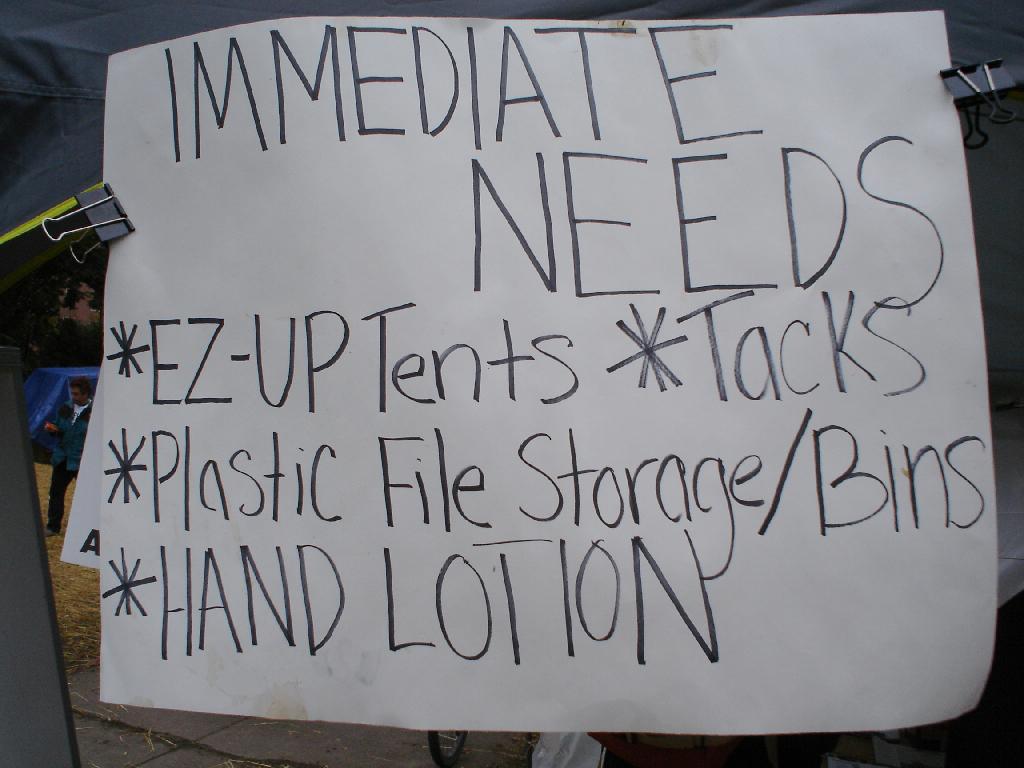 IMMEDIATE
NEEDS
*EZ-UP Tents *Tacks
*Plastic File Storage/Bins
*HAND LOTION
A